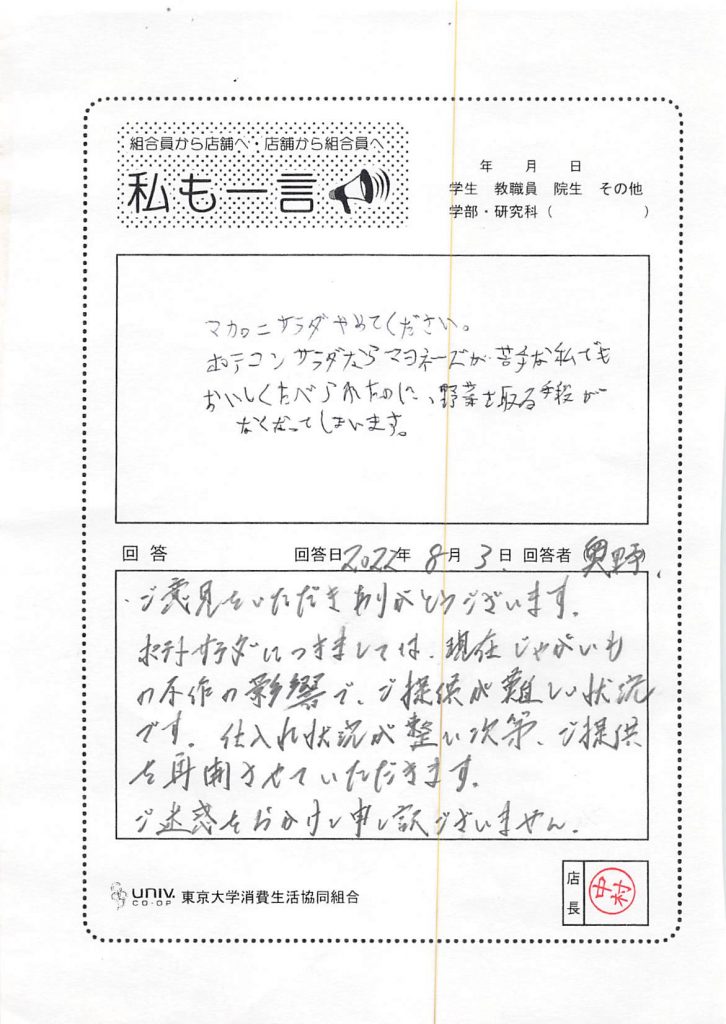 組合員から店舗へ・店舗から組合員へ
私も一言
年 月 日
学生 教職員 院生 その他
学部・研究科( )
マカロニサラダやめてください。
ポテコンサラダならマヨネーズが苦手な私でも
おいしくたべられたのに、野菜を取る手段が
なくなってしまいます。
回答 回答日2022年 8月 3日 回答者(奥野)
・ご意見をいただきありがとうございます。
ポテトサラダにつきましては、現在じゃがいも
の不作の影響で、ご提供が難しい状況
です。仕入れ状況が整い次第、ご提供
を再開させていただきます。
ご迷惑をおかけし申し訳ございません。
UNIV. CO-OP 東京大学消費生活協同組合
店長 中村